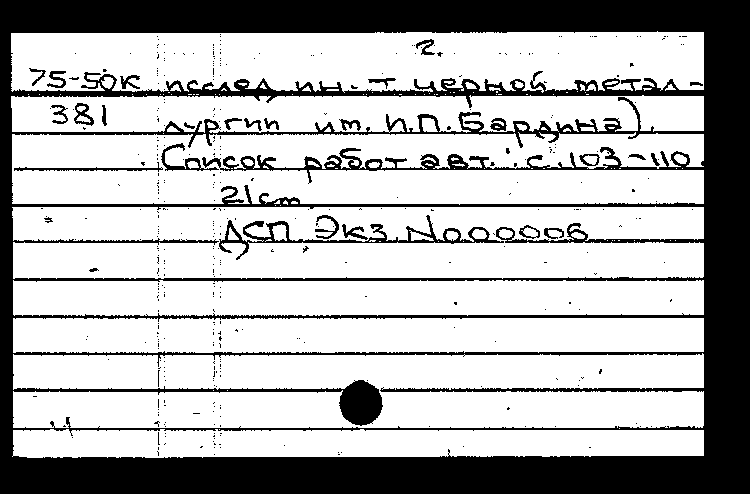 2.
75-50к исслед. ин-т черной метал-
381 лургии им. И.П. Бардина).
Список работ авт.: с. 103-110.
21 cm
ДСП Экз. N000006
ч